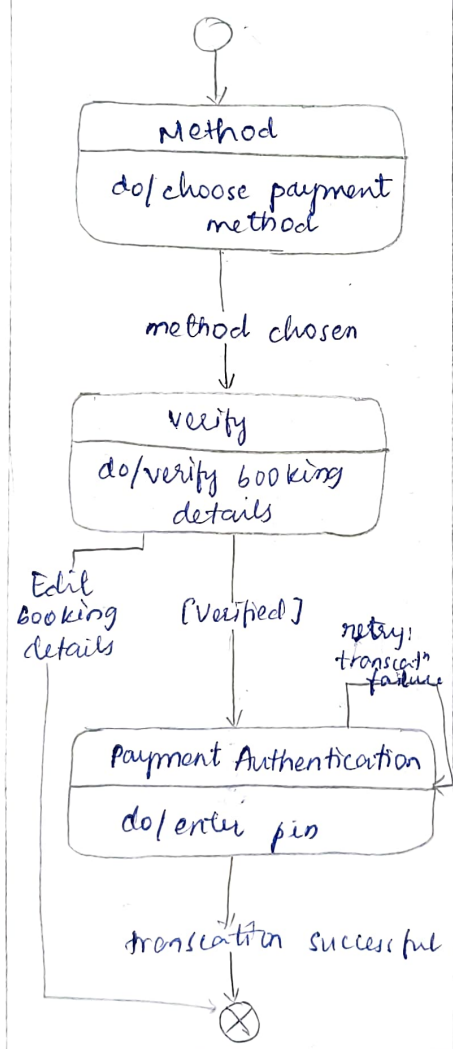 Method
do/choose payment
method
method chosen
verify
do/verify booking
details
Edit
booking
details
[Verified]
retry:
transcatn
failure
Payment Authentication
do/enter pin
transcation successful